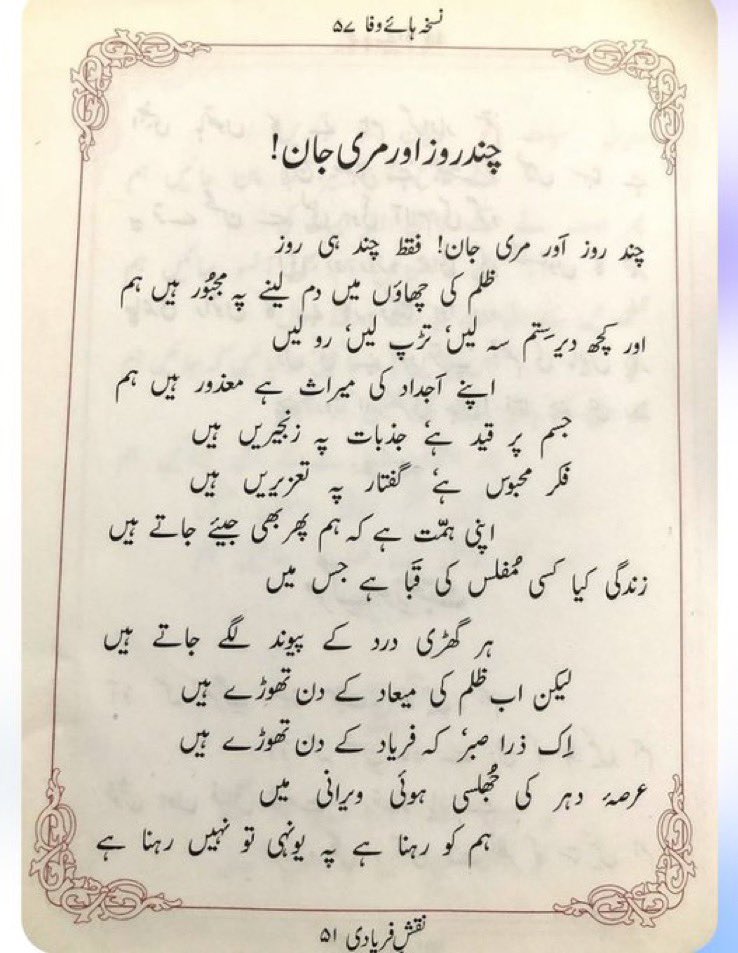 نسخہ ہائے وفا ۵۷
چند روز اور مری جان!
چند روز اَور مری جان! فقط چند ہی روز
ظلم کی چھاؤں میں دم لینے پہ مجبُور ہیں ہم
اور کچھ دیر ستم سہ لیں، تڑپ لیں، رو لیں
اپنے اَجداد کی میراث ہے معذور ہیں ہم
جسم پر قید ہے، جذبات پہ زنجیریں ہیں
فکر محبوس ہے، گفتار پہ تعزیریں ہیں
اپنی ہمّت ہے کہ ہم پھر بھی جیئے جاتے ہیں
زندگی کیا کسی مُفلس کی قَبا ہے جس میں
ہر گھڑی درد کے پیوند لگے جاتے ہیں
لیکن اب ظلم کی میعاد کے دن تھوڑے ہیں
اِک ذرا صبر، کہ فریاد کے دن تھوڑے ہیں
عرصۂ دہر کی جُھلسی ہوئی ویرانی میں
ہم کو رہنا ہے پہ یونہی تو نہیں رہنا ہے
نقشِ فریادی ۵۱